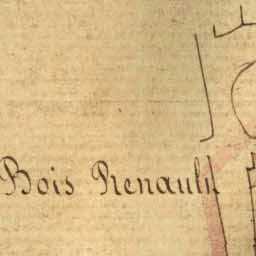 Bois Renault